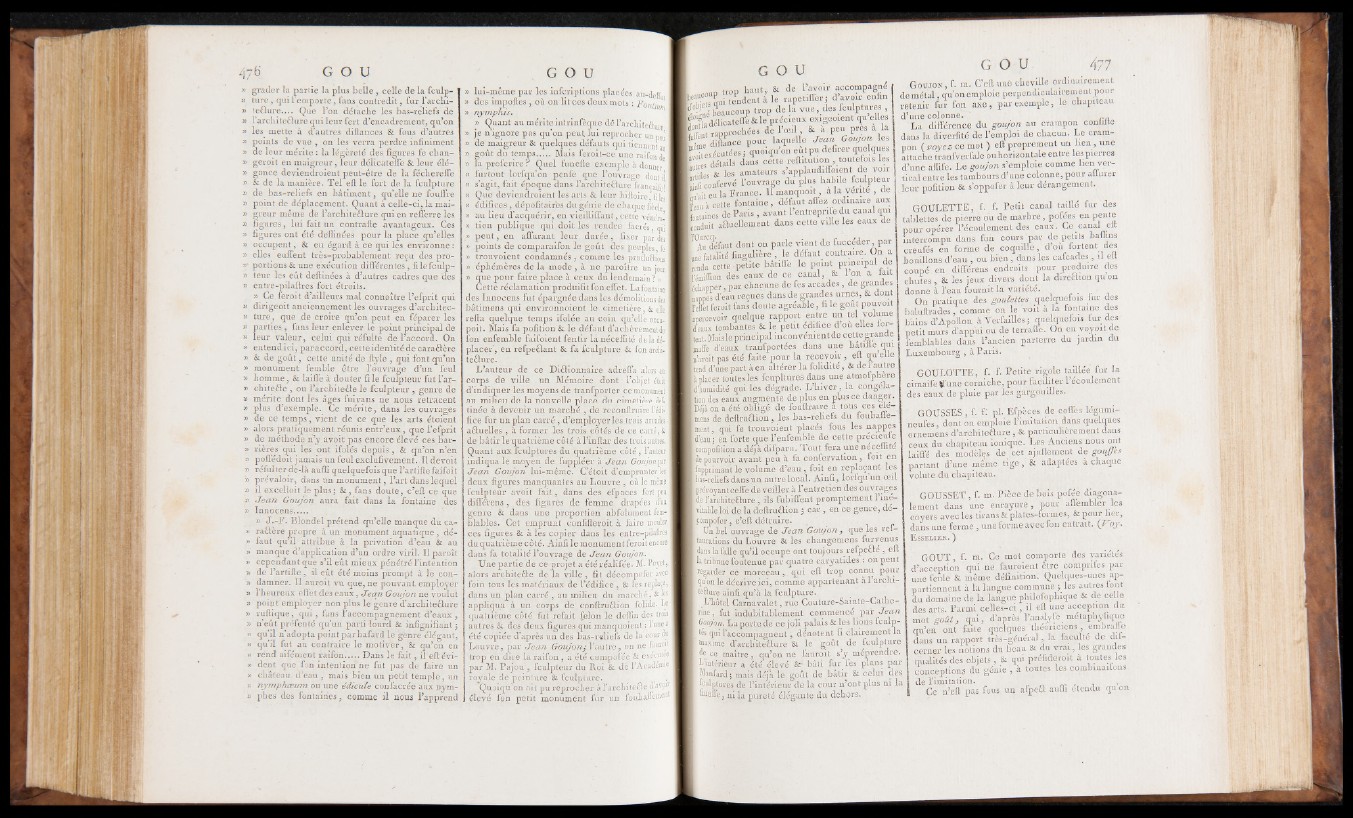 476 G O U
» grader la partie la plus belle, celle de la sculp-
» ture, qui l'emporte, sans contredit, sur l'archi-
» tecture.... Que l'on détache les bas-reliefs de
» l'architecture qui leur sert d'encadrement, qu'on
» les mette à d'autres distances & sous d'autres
» points de vue, on les verra perdre infiniment
» de leur mérite : la légèreté des figures se chan-
» geroit en maigreur, leur délicatesse & leur élé-
» gance deviendroient peut-être de la sécheresse
» & de la manière. Tel est le sort de la sculpture
» de bas-reliefs en bâtiment, qu'elle ne souffre
» point de déplacement. Quant à celle-ci, la mai-
» greur même de l'architecture qui en resserre les
» figures, lui fait un contraste avantageux. Ces
» figures ont été destinées pour la place qu'elles
» occupent, & eu égard à ce qui les environne :
» elles eussent très-probablement reçu des pro-
» portions & une exécution différentes, si le sculp-
» teur les eût destinées à d'autres cadres que des
» entre-pilastres fort étroits.
» Ce seroit d'ailleurs mal connoître l'esprit qui
» dirigeoit anciennement les ouvrages d'architec-
» ture, que de croire qu'on peut en séparer les
» parties, sans leur enlever le point principal de
» leur valeur, celui qui résulte de l'accord. On
» entend ici, par accord, cette identité de caractère
» & de goût, cette unité de style, qui font qu'un
» monument semble être l'ouvrage d'un seul
» homme, & laisse à douter si le sculpteur fut l'ar-
» chitecte, ou l'architecte le sculpteur, genre de
» mérite dont les âges suivans ne nous retracent
» plus d'exemple. Ce mérite, dans les ouvrages
» de ce temps, vient de ce que les arts étoient
» alors pratiquement réunis entr'eux, que l'esprit
» de méthode n'y avoit pas encore élevé ces bar-
» rières qui les ont isolés depuis, & qu'on n'en
» possédoit jamais un seul exclusivement. Il devoit
» résulter de-là aussi quelquefois que l'artiste faisoit
» prévaloir, dans un monument, l'art dans lequel
» il excelloit le plus ; &, sans doute, c'est ce que
» Jean Goujon aura fait dans la fontaine des
» Innocens.....
» J.-F. Blondel prétend qu'elle manque du ca-
» ractère propre à un monument aquatique, dé-
» faut qu'il attribue à la privation d'eau & au
» manque d'application d'un ordre viril. Il paroît
» cependant que s'il eût mieux pénétré l'intention
» de l'artiste, il eût été moins prompt à le con-
» damner. Il auroit vu que, ne pouvant employer
» l'heureux effet des eaux, Jean Goujon ne voulut
» point employer non plus le genre d'architecture
» rustique, qui, sans l'accompagnement d'eaux,
» n'eût présenté qu'un parti lourd & insignifiant ;
» qu'il n'adopta point par hasard le genre élégant,
» qu'il sut au contraire le motiver, & qu'on en
» rend aisément raison..... Dans le fait, il est évi-
» dent que son intention ne fut pas de faire un
» château d'eau, mais bien un petit temple, un
» nymphæum ou une édicule consacrée aux nym-
» phes des fontaines, comme il nous l'apprend
G O U
» lui-même par les inscriptions placées au-dessus
» des impostes, où on lit ces deux mots : Fontium
» nymphis.
» Quant au mérite intrinsèque de l'architecture,
» je n'ignore pas qu'on peut lui reprocher son peu
» de maigreur & quelques défauts qui tiennent au
» goût du temps..... Mais seroit-ce une raison de
» la proscrire ? Quel funeste exemple à donner,
» surtout lorsqu'on pense que l'ouvrage dont il
» s'agit, fait époque dans l'architecture françoise !
» Que deviendroient les arts & leur histoire, si les
» édifices, dépositaires du génie de chaque siècle,
» au lieu d'acquérir, en vieillissant, cette véné-
» tion publique qui doit les rendre sacrés, qui
» peut, en assurant leur durée, fixer par des
» points de comparaison le goût des peuples, se
» trouvoient condamnés, comme les productions
» éphémères de la mode, à ne paroître un jour
» que pour faire place à ceux du lendemain ? »
Cette réclamation produisit son effet. La fontaine
des Innocens fut épargnée dans les démolitions des
bâtimens qui environnoient le cimetière, & elle
resta quelque temps isolée au coin qu'elle occu-
poit. Mais sa position & le défaut d'achèvement de
son ensemble faisoient sentir la nécessité de la dé-
placer, en respectant & sa sculpture & son archi-
tecture.
L'auteur de ce Dictionnaire adressa alors au
corps de ville un Mémoire dont l'objet étoit
d'indiquer les moyens de transporter ce monument
au milieu de la nouvelle place du cimetière des-
tinée à devenir un marché, de reconstruire l'édi-
fice sur un plan carré, d'employer les trois arcades
actuelles, à former les trois côtés de ce carré, &
de bâtir le quatrième côté à l'instar des trois autres.
Quant aux sculptures du quatrième côté, l'auteur
indiqua le moyen de suppléer à Jean Goujon par
Jean Goujon lui-même. C'étoit d'emprunter les
deux figures manquantes au Louvre, où le même
sculpteur avoit fait, dans des espaces fort peu
différens, des figures de femme drapées du
genre & dans une proportion absolument sem-
blables. Cet emprunt consisteroit à faire mouler
ces figures & à les copier dans les entre-pilastres
du quatrième côté. Ainsi le monument seroit encore
dans sa totalité l'ouvrage de Jean Goujon.
Une partie de ce projet a été réalisée. M. Poyet,
alors architecte de la ville, fit décomposer avec
soin tous les matériaux de l'édifice, & les replaça,
dans un plan carré, au milieu du marché, & les
appliqua à un corps de construction solide. Le
quatrième côté fut refait selon le dessin des trois
autres & des deux figures qui manquoient ; l'une a
été copiée d'après un des bas-reliefs de la cour du
Louvre, par Jean Goujon ; l'autre, on ne sauroit
trop en dire la raison, a été composée & exécutée
par M. Pajou, sculpteur du Roi & de l'Académie
royale de peinture & sculpture.
Quoiqu'on eût pu reprocher à l'architecte d'avoir
élevé son petit monument sur un soubassement
G O U
beaucoup trop haut, & de l'avoir accompagné
d'objets qui tendent à le rapetisser ; d'avoir enfin
éloigné beaucoup trop de la vue, des sculptures,
dont la délicatesse & le précieux exigeoient qu'elles
fussent rapprochées de l'œil, & à peu près à la
même distance pour laquelle Jean Goujon les
avoit exécutées ; quoiqu'on eût pu desirer quelques
autres détails dans cette restitution, toutefois les
artistes & les amateurs s'applaudissoient de voir
ainsi conservé l'ouvrage du plus habile sculpteur
qu'ait eu la France. Il manquoit, à la vérité, de
l'eau à cette fontaine, défaut assez ordinaire aux
fontaines de Paris, avant l'entreprise du canal qui
conduit actuellement dans cette ville les eaux de
l'Ourcq.
Au défaut dont on parle vient de succéder, par
une fatalité singulière, le défaut contraire. On a
rendu cette petite bâtisse le point principal de
l'émission des eaux de ce canal, & l'on a fait
échapper, par chacune de ses arcades, de grandes
nappes d'eau reçues dans de grandes urnes, & dont
l'effet seroit sans doute agréable, si le goût pouvoit
concevoir quelque rapport entre un tel volume
d'eaux tombantes & le petit édifice d'où elles sor-
tent. Mais le principal inconvénient de cette grande
masse d'eaux transportées dans une bâtisse qui
n'avoit pas été faite pour la recevoir, est qu'elle
tend d'une part à en altérer la solidité, & de l'autre
à placer toutes les sculptures dans une atmosphère
d'humidité qui les dégrade. L'hiver, la congéla-
tion des eaux augmente de plus en plus ce danger.
Déjà on a été obligé de soustraire à tous ces élé-
mens de destruction, les bas-reliefs du soubasse-
ment, qui se trouvoient placés sous les nappes
d'eau ; en sorte que l'ensemble de cette précieuse
composition a déjà disparu. Tout sera une nécessité
de pourvoir avant peu à sa conservation, soit en
supprimant le volume d'eau, soit en replaçant les
bas-reliefs dans un autre local. Ainsi, lorsqu'un œil
prévoyant cesse de veiller à l'entretien des ouvrages
de l'architecture, ils subissent promptement l'iné-
vitable loi de la destruction ; car, en ce genre, dé-
composer, c'est détruire.
Un bel ouvrage de Jean Goujon, que les res-
taurations du Louvre & les changemens survenus
dans la salle qu'il occupe ont toujours respecté, est
la tribune soutenue par quatre caryatides : on peut
regarder ce morceau, qui est trop connu pour
qu'on le décrive ici, comme appartenant à l'archi-
tecture ainsi qu'à la sculpture.
L'hôtel Carnavalet, rue Couture-Sainte-Cathe-
rine, fut indubitablement commencé par Jean
Goujon. La porte de ce joli palais & les lions sculp-
tés qui l'accompagnent, dénotent si clairement la
maxime d'architecture & le goût de sculpture
de ce maître, qu'on ne sauroit s'y méprendre.
L'intérieur a été élevé & bâti sur les plans par
Mansard ; mais déjà le goût de bâtir & celui des
sculptures de l'intérieur de la cour n'ont plus ni la
finesse, ni la pureté élégante du dehors.
G O U 477
GOUJON, f. m. C'est une cheville ordinairement
de métal, qu'on emploie perpendiculairement pour
retenir sur son axe, par exemple, le chapiteau
d'une colonne.
La différence du goujon au crampon consiste
dans la diversité de l'emploi de chacun. Le cram-
pon (voyez ce mot) est proprement un lien, une
attache transversale ou horizontale entre les pierres
d'une assise. Le goujon s'emploie comme lien ver-
tical entre les tambours d'une colonne, pour assurer
leur position & s'opposer à leur dérangement.
GOULETTE, f. f. Petit canal taillé sur des
tablettes de pierre ou de marbre, posées en pente
pour opérer l'écoulement des eaux. Ce canal est
interrompu dans son cours par de petits bassins
creusés en forme de coquille, d'où sortent des
bouillons d'eau, ou bien, dans les cascades, il est
coupé en différens endroits pour produire des
chutes, & les jeux divers dont la direction qu'on
donne à l'eau fournit la variété.
On pratique des goulettes quelquefois sur des
balustrades, comme on le voit à la fontaine des
bains d'Apollon à Versailles ; quelquefois sur des
petits murs d'appui ou de terrasse. On en voyoit de
semblables dans l'ancien parterre du jardin du
Luxembourg, à Paris.
GOULOTTE, f. f. Petite rigole taillée sur la
cimaise d'une corniche, pour faciliter l'écoulement
des eaux de pluie par les gargouilles.
GOUSSES, f. f. pl. Espèces de cosses légumi-
neuses, dont on emploie l'imitation dans quelques
ornemens d'architecture, & particulièrement dans
ceux du chapiteau ionique. Les Anciens nous ont
laissé des modèles de cet ajustement de gousses
partant d'une même tige, & adaptées à chaque
volute du chapiteau.
GOUSSET, f. m. Pièce de bois posée diagona-
lement dans une enrayure, pour assembler les
coyers avec les tirans & plates-formes, & pour lier,
dans une ferme, une force avec son entrait. (Voy.
ESSELIER.)
GOUT, f. m. Ce mot comporte des variétés
d'acception qui ne sauroient être comprises par
une seule & même définition. Quelques-unes ap-
partiennent à la langue commune ; les autres sont
du domaine de la langue philosophique & de celle
des arts. Parmi celles-ci, il est une acception du
mot goût, qui, d'après l'analyse métaphysique
qu'en ont faite quelques théoriciens, embrasse
dans un rapport très-général, la faculté de dis-
cerner les notions du beau & du vrai, les grandes
qualités des objets, & qui présideroit à toutes les
conceptions du génie, à toutes les combinaisons
de l'imitation.
Ce n'est pas sous un aspect aussi étendu qu'on